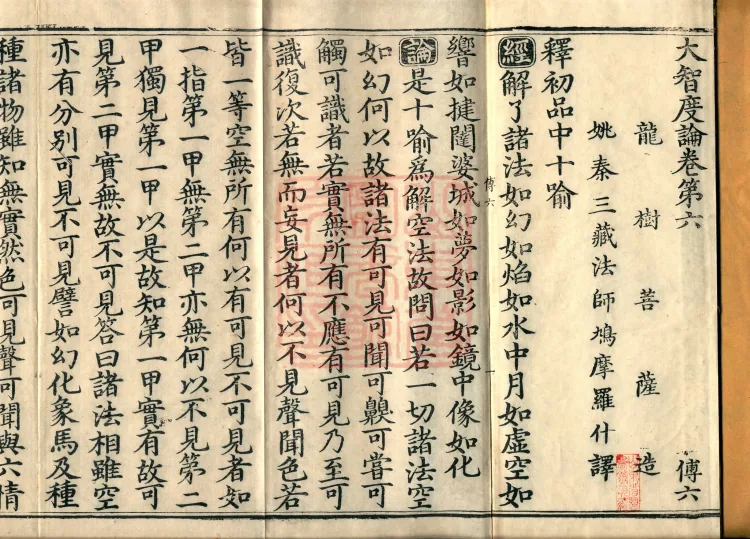 大智度論卷第六 傅六
龍樹菩薩造
姚秦三藏法師鳩摩羅什譯
釋初品中十喻
經解了諸法如幻如焰如水中月如虛空如
傅六
響如揵闥婆城如夢如影如鏡中像如化
論是十喻爲解空法故問曰若一切諸法空
如幻何以故諸法有可見可聞可齅可甞可
觸可識者若實無所有不應有可見乃至可
識復次若無而妄見者何以不見聲聞色若
皆一等空無所有何以有可見不可見者如
一指第一甲無第二甲亦無何以不見第二
甲獨見第一甲以是故知第一甲實有故可
見第二甲實無故不可見答曰諸法相雖空
亦有分別可見不可見譬如幻化象馬及種
種諸物雖知無實然色可見聲可聞與六情